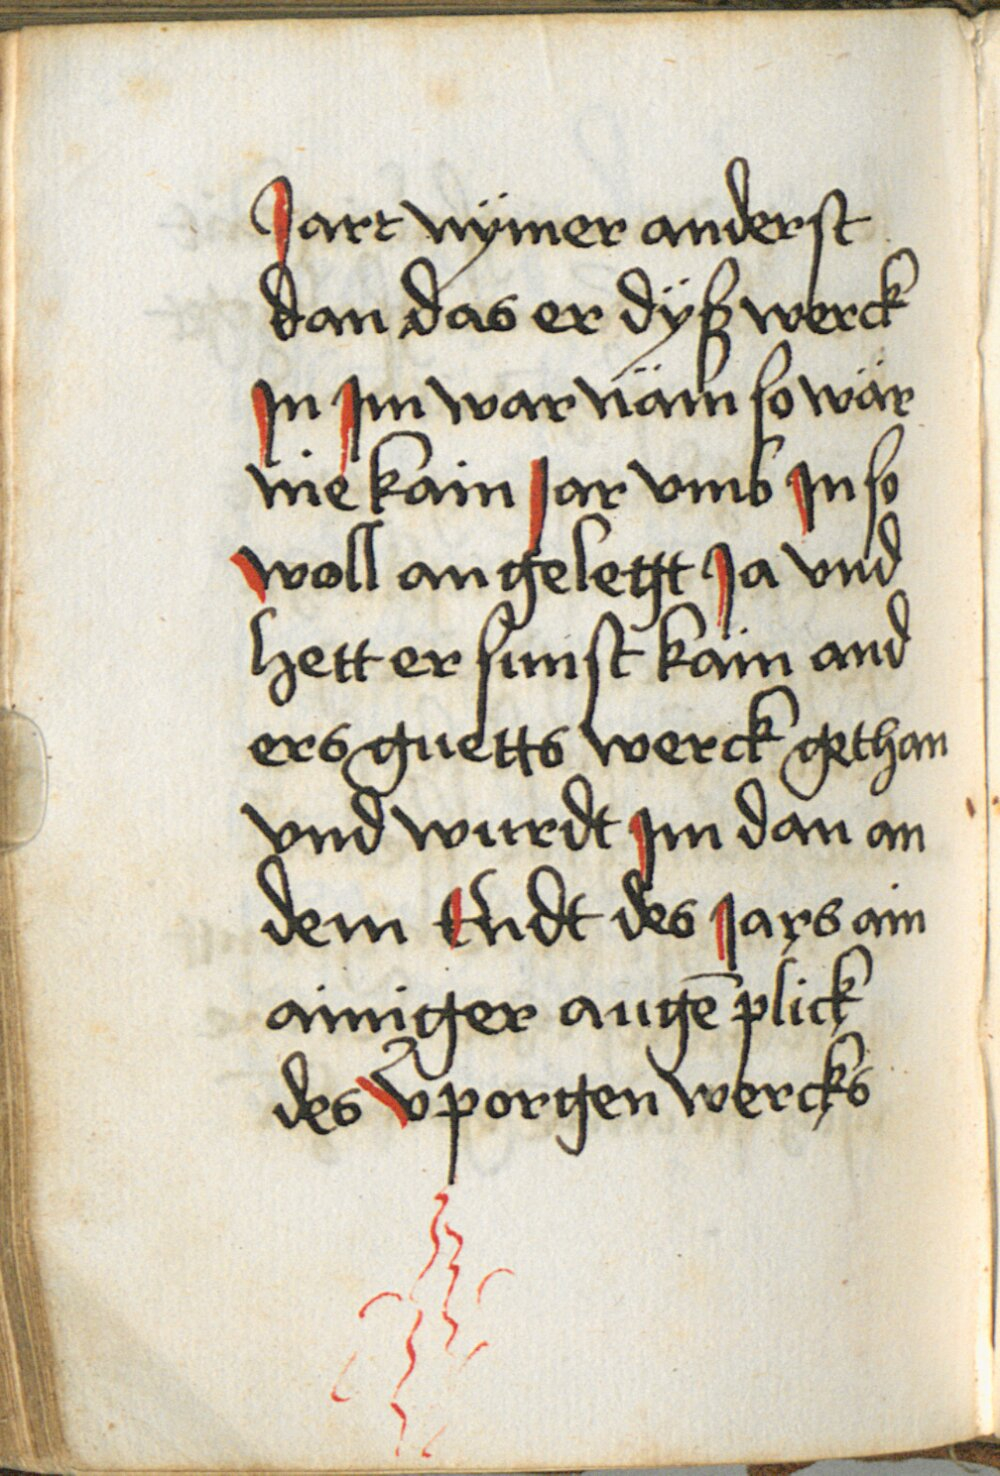 Jart nÿmer anderst
dan das er dÿß werck
Jn Jm war näm so wär
nie kain Jar vmb Jn so
woll angelegt Ja vnd
hett er sunst kain and
ers guetts werck gethan
vnd wurdt Jm dan an
dem Endt des Jars ain
ainiger augē plick
des v̄porgen wercks